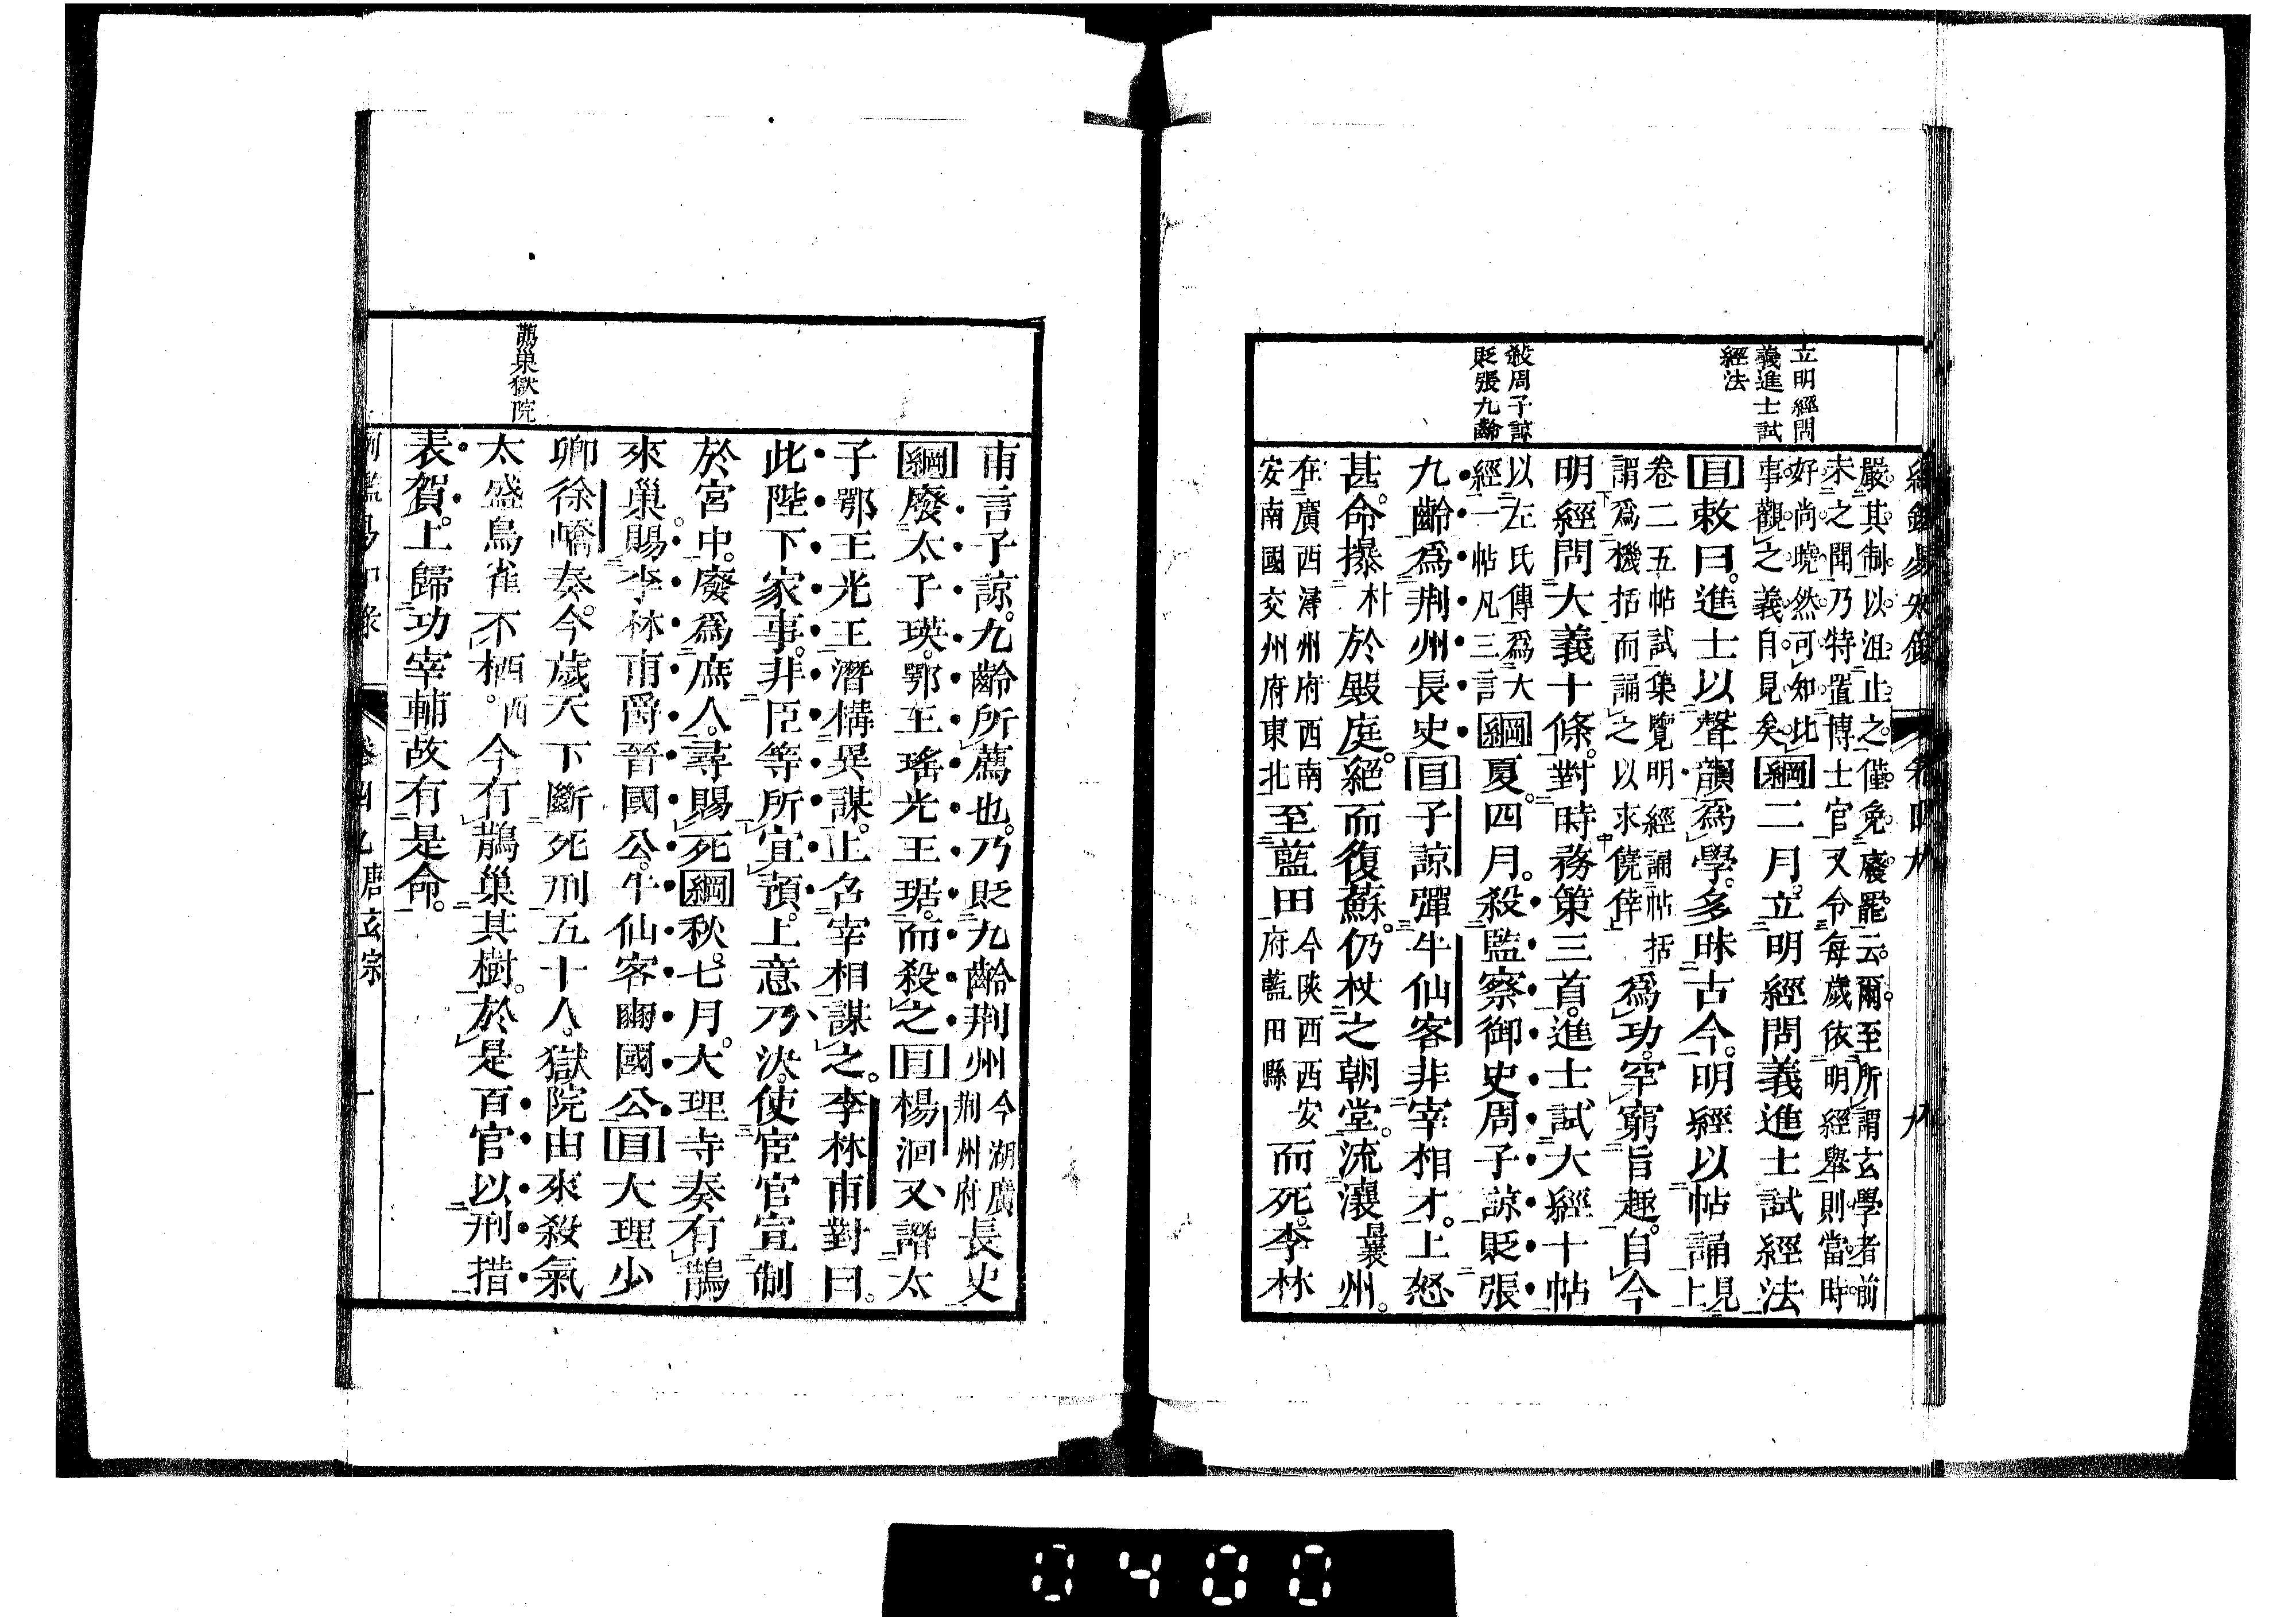 立明經問
義進士試
經法
殺周子諒
貶張九齡
嚴其制以沮止之僅免廢罷云爾至所謂玄學者前
未之聞乃特置博士官又令每歲依明經舉則當時
好尚曉然可知比
事觀之義自見矣綱二月立明經問義進士試經法
目敕曰進士以聲韻爲學多昧古今明經以帖誦見上
卷二五帖試集覽明經誦帖括
謂爲機括而誦之以求僥倖爲功罕窮旨趣自今
明經問大義十條對時務策三首進士試大經十帖
以左氏傳爲大
經一帖凡三言綱夏四月殺監察御史周子諒貶張
九齡爲荆州長史目子諒彈牛仙客非宰相才上怒
甚命撲朴於殿庭絕而復蘇仍杖之朝堂流瀼音襄州
在廣西潯州府西南
安南國交州府東北至藍田今陝西西安
府藍田縣而死李林
鵲巢獄院
甫言子諒九齡所薦也乃貶九齡荆州今湖廣
荆州府長史
綱廢太子瑛鄂王瑤光王琚而殺之目楊洄又譖太
子鄂王光王潛構異謀上召宰相謀之李林甫對曰
此陛下家事非臣等所宜預上意乃決使宦官宣制
於宮中廢爲庶人尋賜死綱秋七月大理寺奏有鵲
來巢賜李林甫爵晉國公牛仙客豳國公目大理少
卿徐嶠奏今歲天下斷死刑五十人獄院由來殺氣
太盛鳥雀不栖西今有鵲巢其樹於是百官以刑措
表賀上歸功宰輔故有是命
卷四九 唐玄宗